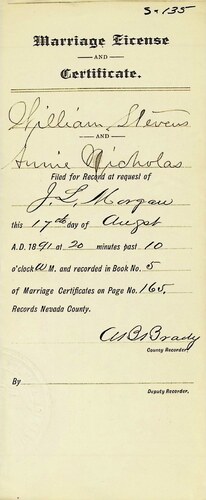 S-135
Marriage License
AND
Certificate.
William Stevens
AND
Annie Nicholas
Filed for Record at request of
J. L. Morgan
this 17th day of August
A.D. 1891 at 20 minutes past 10
o'clock A M. and recorded in Book No. 5
of Marriage Certificates on Page No. 165.
Records Nevada County.
Brady
County Recorder.
By
Deputy Recorder.